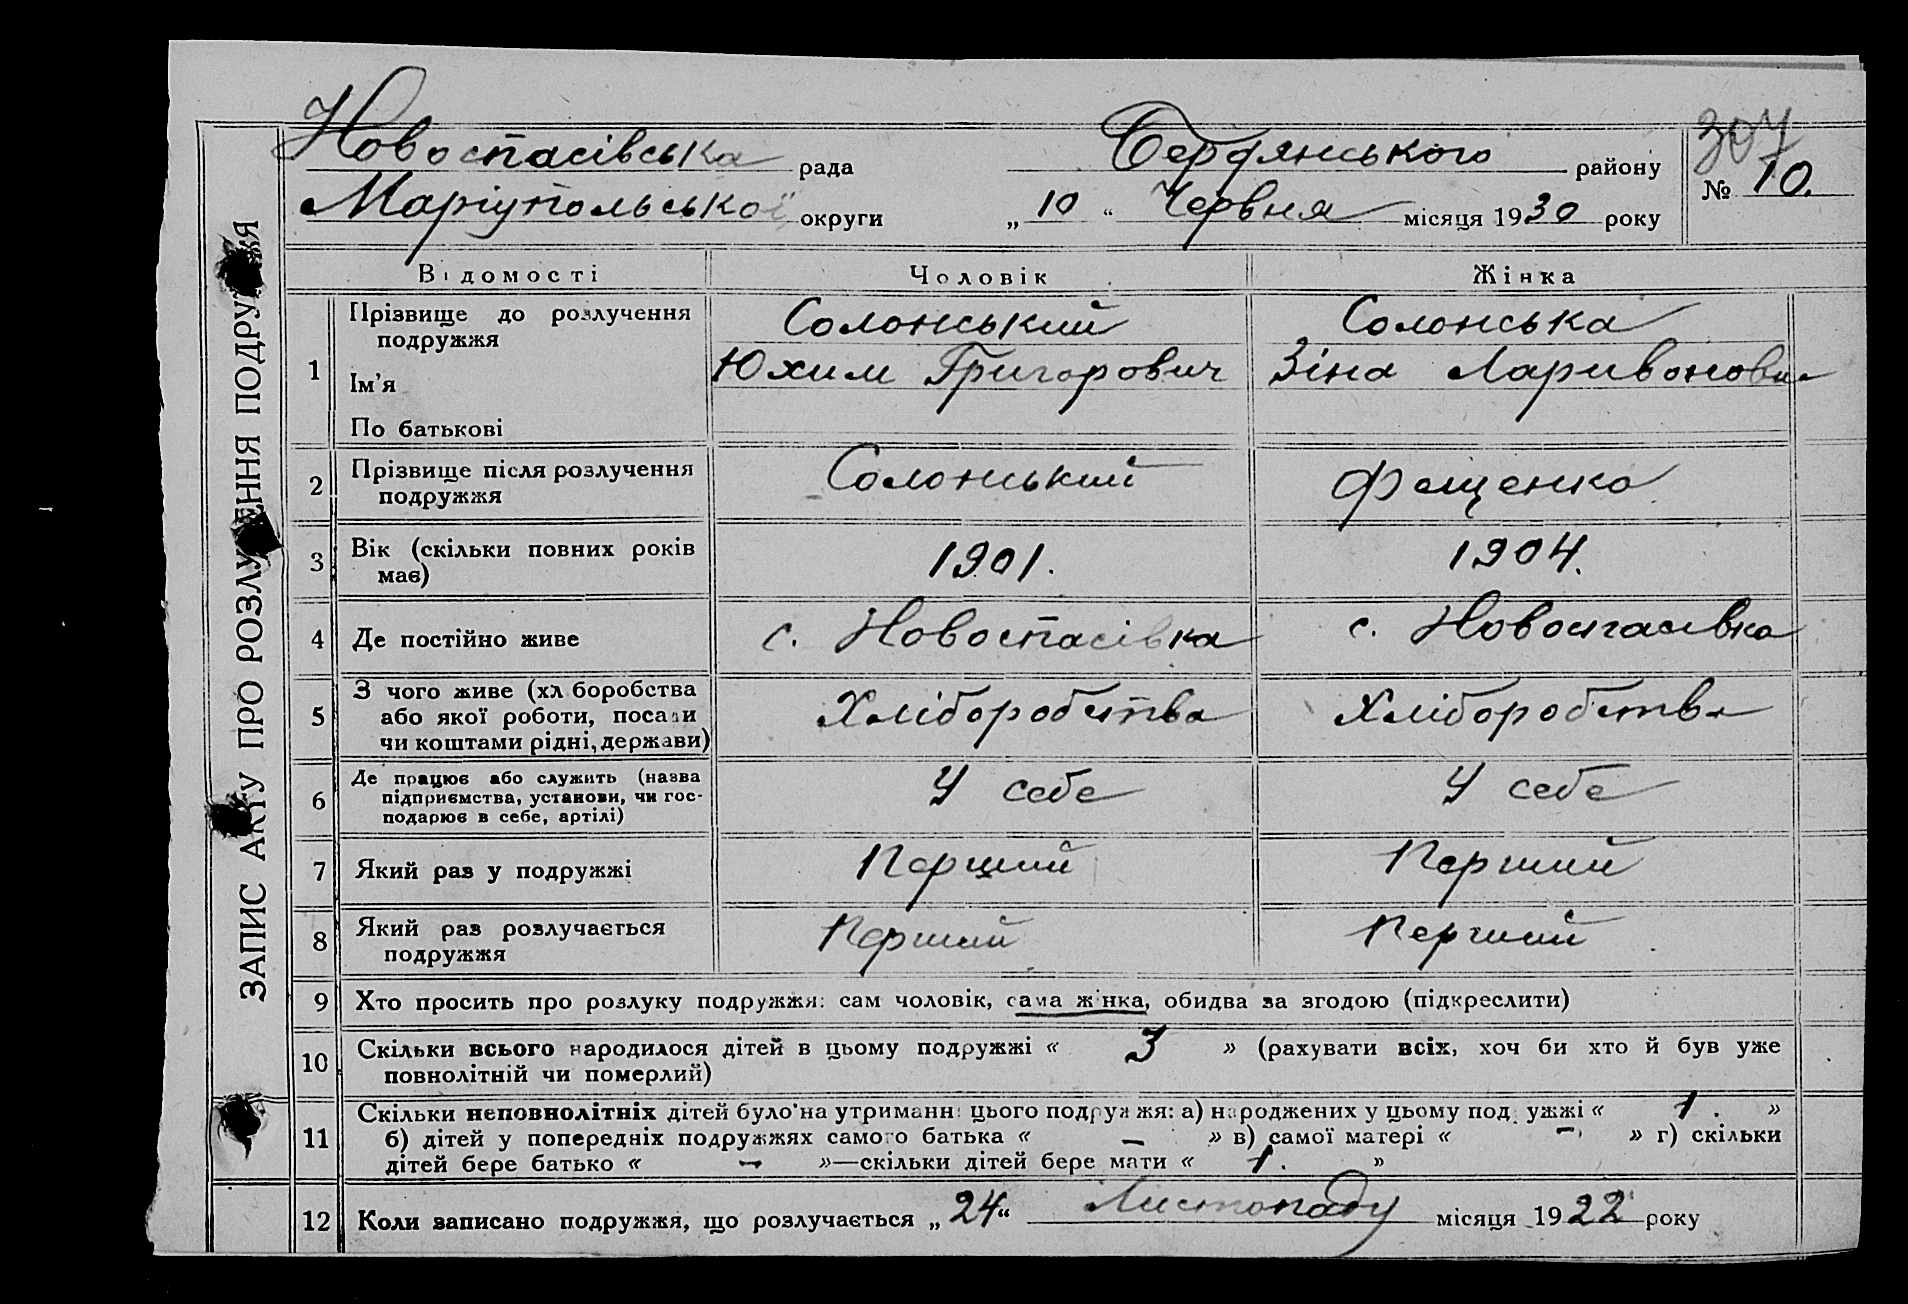 ЗАПИС АКТУ ПРО РОЗЛУЧЕННЯ ПОДРУЖЖЯ
307
Новоспасівська рада Бердянського району
№ 10.
Маріупольської округи „ 10 “ Червня місяця 1930 року
Відомості Чоловік Жінка
1 Прізвище до розлучення подружжя Солонський Солонська
Ім'я Юхим Григорович Зіна Ларивоновна
По батькові
2 Прізвище після розлучення подружжя Солонський Фещенко
3 Вік (скільки повних років має) 1901. 1904.
4 Де постійно живе с. Новоспасівка с. Новоспасівка
5 З чого живе (хліборобства
або якої роботи, посади
чи коштами рідні, держави) Хліборобства Хліборобства
6 Де працює або служить (назва
підприємства, установи, чи гос-
подарює в себе, артілі) У себе У себе
7 Який раз у подружжі Перший Перший
8 Який раз розлучається
подружжя Перший Перший
9 Хто просить про розлуку подружжя: сам чоловік, сама жінка, обидва за згодою (підкреслити)
10 Скільки всього народилося дітей в цьому подружжі « 3 » (рахувати всіх, хоч би хто й був уже
повнолітній чи померлий)
11 Скільки неповнолітніх дітей було на утриманні цього подружжя: а) народжених у цьому подружжі « 1. »
б) дітей у попередніх подружжях самого батька « — » в) самої матері « — » г) скільки
дітей бере батько « — »—скільки дітей бере мати « 1. »
12 Коли записано подружжя, що розлучається „ 24 “ Листопаду місяця 1922 року